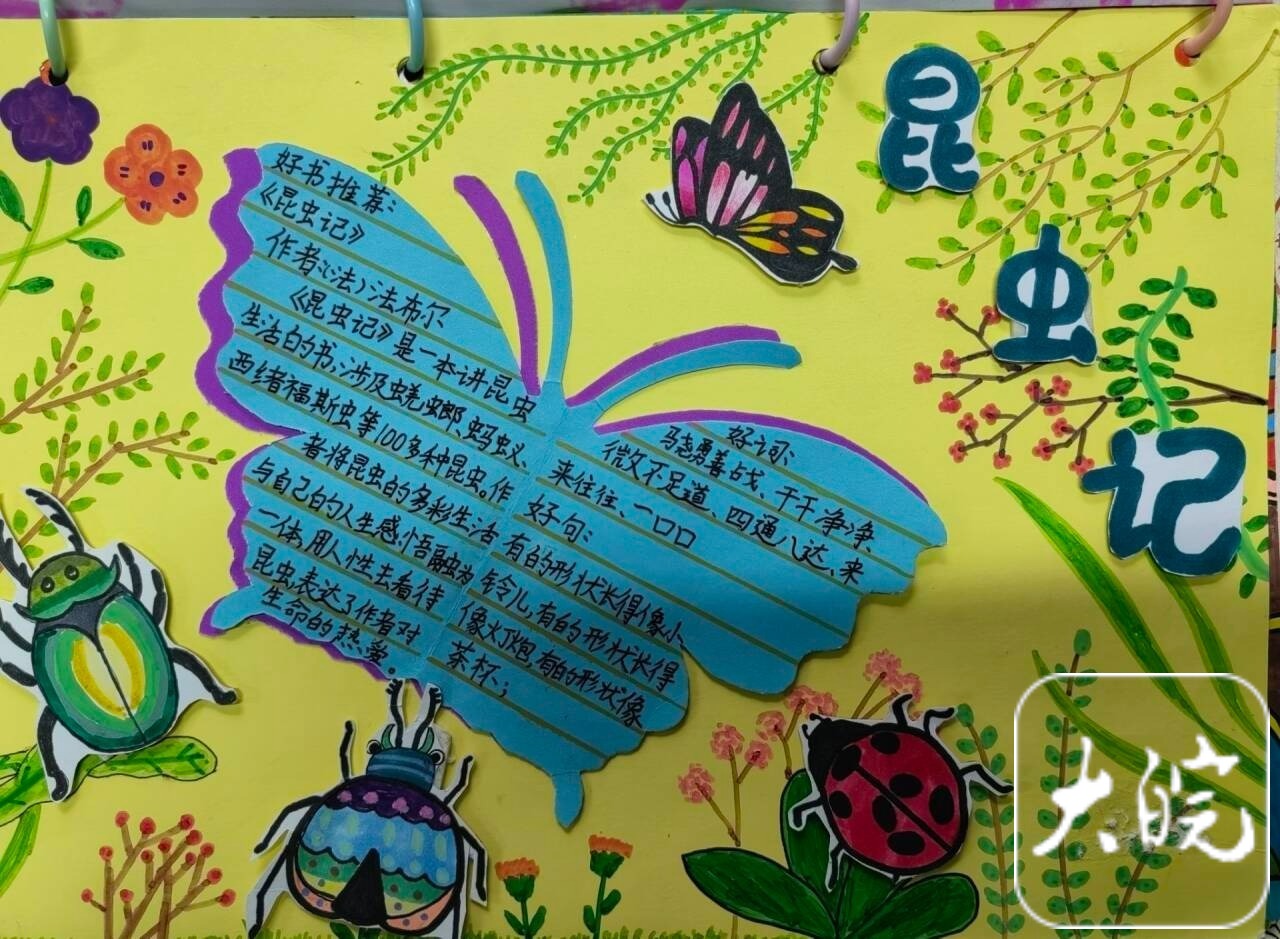 昆
虫
记
好书推荐:
《昆虫记》
作者:(法)法布尔
《昆虫记》是一本讲昆虫
生活的书,涉及蜣螂、蚂蚁、
西绪福斯虫等100多种昆虫。作
者将昆虫的多彩生活
与自己的人生感悟融为
一体,用人性去看待
昆虫表达了作者对
生命的热爱。
好词:
骁勇善战、干干净净、
微不足道、四通八达、来
来往往、一口口
好句:
有的形状长得像小
铃儿,有的形状长得
像火炮,有的形状像
茶杯;
大皖